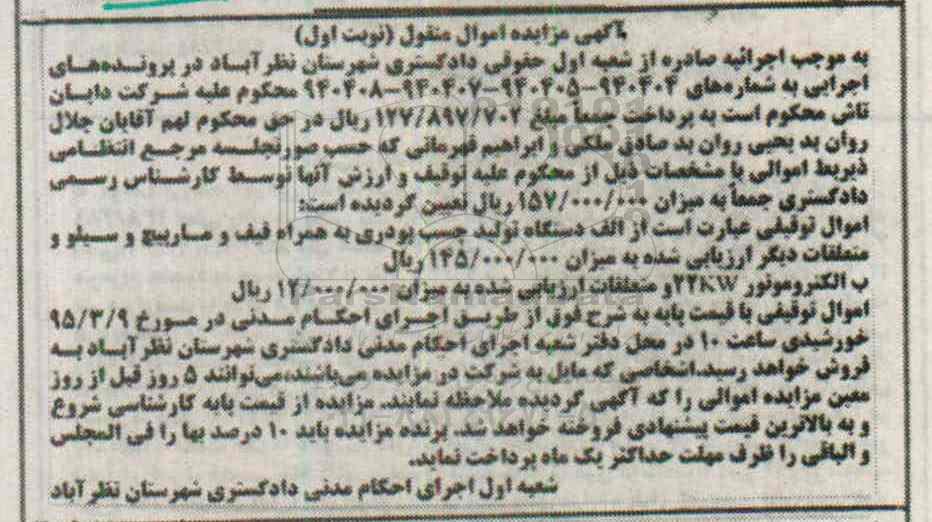 آگهی مزایده اموال منقول (نوبت اول)
به موجب اجرائیه صادره از شعبه اول حقوقی دادگستری شهرستان نظرآباد در پرونده‌های
اجرایی به شماره‌های ۹۴۰۴۰۴-۹۴۰۴۰۵-۹۴۰۴۰۷-۹۴۰۴۰۸ محکوم علیه شرکت دایان
تاش محکوم است به پرداخت جمعاً مبلغ ۱۲۷/۸۹۷/۷۰۲ ریال در حق محکوم لهم آقایان جلال
روان بد یحیی روان بد صادق ملکی و ابراهیم قهرمانی که حسب صورتجلسه مرجع انتظامی
ذیربط اموالی با مشخصات ذیل از محکوم علیه توقیف و ارزش آنها توسط کارشناس رسمی
دادگستری جمعاً به میزان ۱۵۷/۰۰۰/۰۰۰ ریال تعیین گردیده است:
اموال توقیفی عبارت است از الف دستگاه تولید چسب پودری به همراه قیف و مارپیچ و سیلو و
متعلقات دیگر ارزیابی شده به میزان ۱۴۵/۰۰۰/۰۰۰ ریال
ب الکتروموتور ۲۲KW و متعلقات ارزیابی شده به میزان ۱۲/۰۰۰/۰۰۰ ریال
اموال توقیفی با قیمت پایه به شرح فوق از طریق اجرای احکام مدنی در مورخ ۹۵/۳/۹
خورشیدی ساعت ۱۰ در محل دفتر شعبه اجرای احکام مدنی دادگستری شهرستان نظرآباد به
فروش خواهد رسید.اشخاصی که مایل به شرکت در مزایده می‌باشند،می‌توانند ۵ روز قبل از روز
معین مزایده اموالی را که آگهی گردیده ملاحظه نمایند. مزایده از قیمت پایه کارشناسی شروع
و به بالاترین قیمت پیشنهادی فروخته خواهد شد. برنده مزایده باید ۱۰ درصد بها را فی المجلس
و الباقی را ظرف مهلت حداکثر یک ماه پرداخت نماید.
شعبه اول اجرای احکام مدنی دادگستری شهرستان نظرآباد